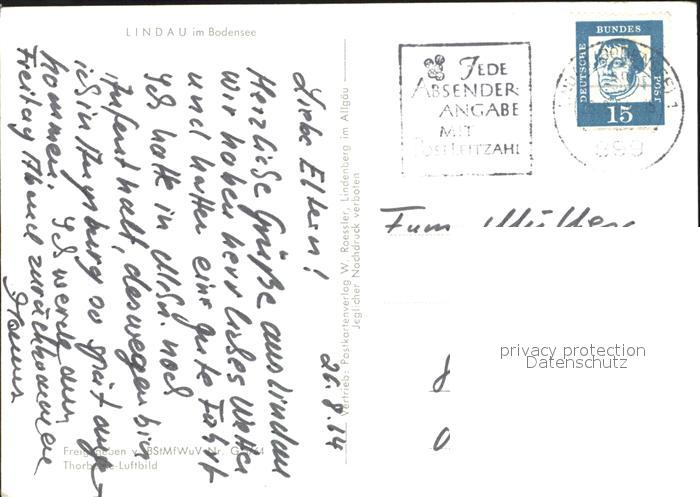 LINDAU im Bodensee
26.8.64
Liebe Eltern!
Herzliche Grüße aus Lindau
Wir haben herrliches Wetter
und hatten eine gute Fahrt
Ich hatte in Mchn. noch
Aufenthalt, deswegen bin
ich in Augsburg so spät ange-
kommen. Ich werde am
Freitag Abend zurückkommen
Freigegeben v. BStMfWuV Nr. G
Thorbecke-Luftbild
Vertrieb: Postkartenverlag W. Roessler, Lindenberg im Allgäu
Jeglicher Nachdruck verboten
JEDE
ABSENDER-
ANGABE
MIT
POSTLEITZAHL
DEUTSCHE
BUNDES
POST
15
Fam.
privacy protection
Datenschutz